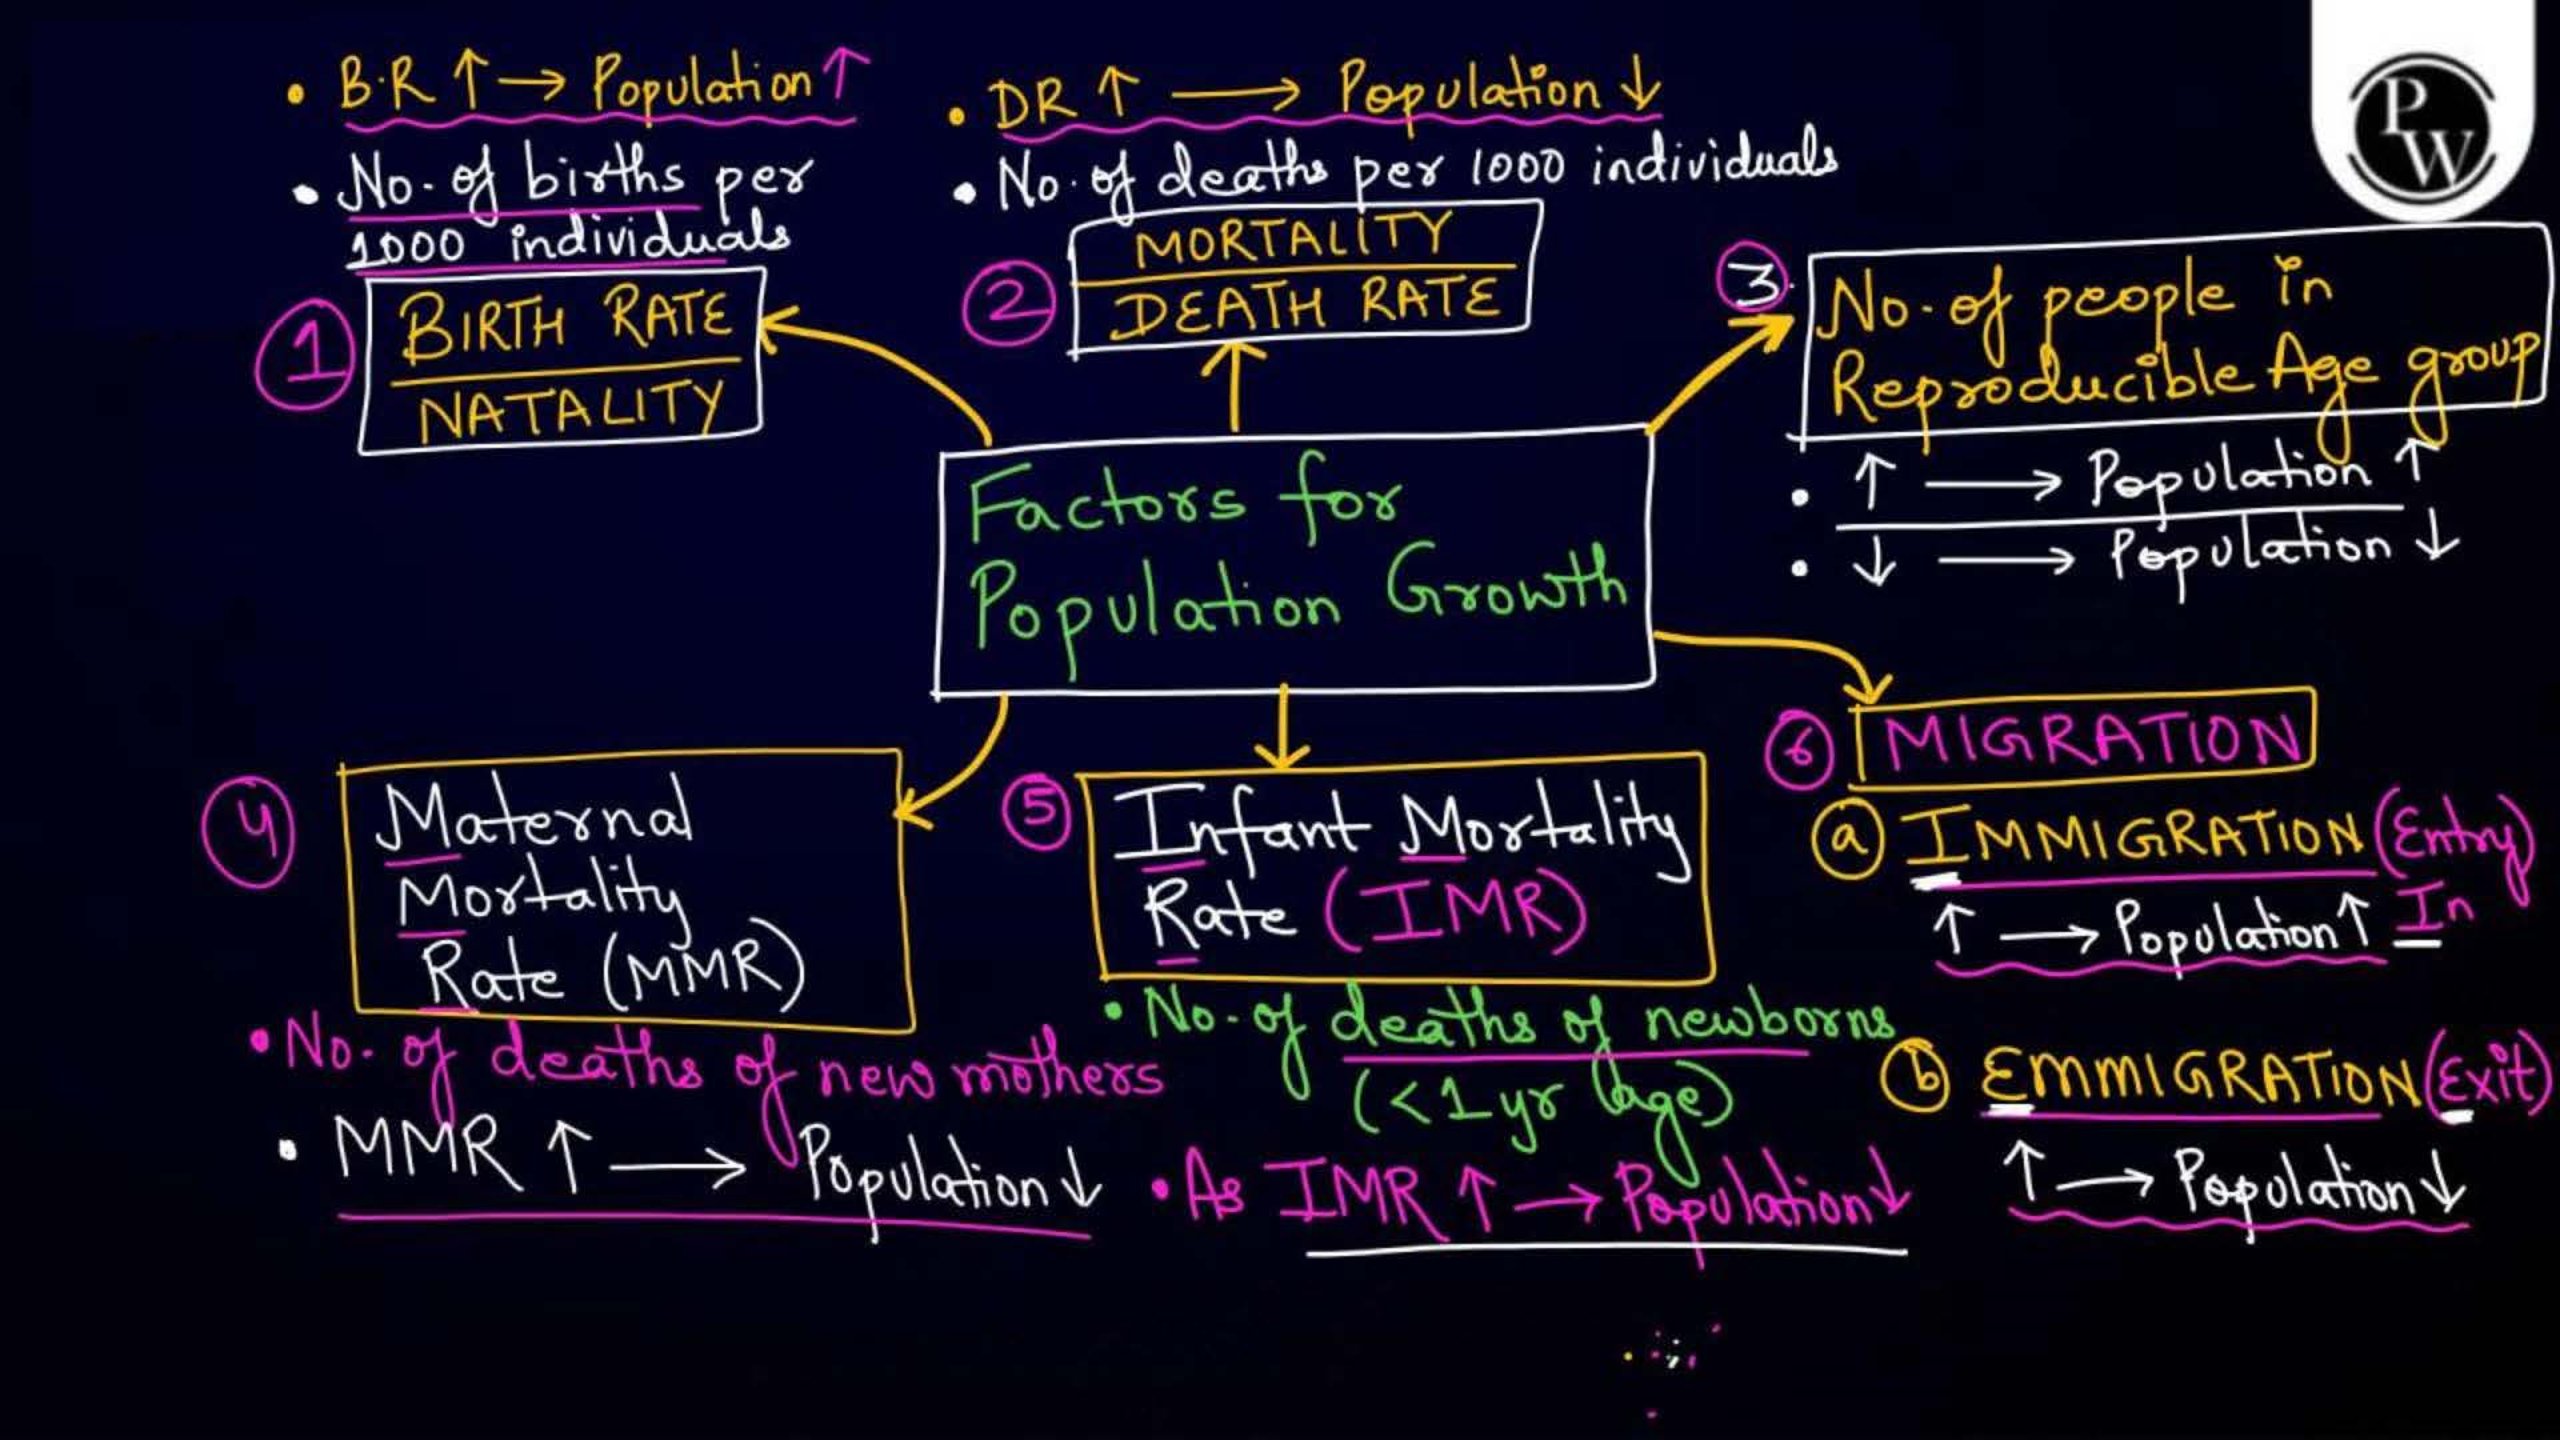 • B.R ↑ → Population ↑
• No. of births per
1000 individuals
1 BIRTH RATE
NATALITY
• DR ↑ → Population ↓
• No. of deaths per 1000 individuals
2 MORTALITY
DEATH RATE
PW
3. No. of people in
Reproducible Age group
• ↑ → Population ↑
• ↓ → Population ↓
Factors for
Population Growth
4 Maternal
Mortality
Rate (MMR)
• No. of deaths of new mothers
• MMR ↑ → Population ↓
5 Infant Mortality
Rate (IMR)
• No. of deaths of newborns
(<1 yr age)
• As IMR ↑ → Population ↓
6 MIGRATION
a IMMIGRATION (Entry)
In
↑ → Population ↑
b EMMIGRATION (Exit)
↑ → Population ↓